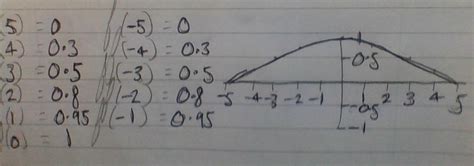 5) = 0 // (-5) = 0
4) = 0.3 // (-4) = 0.3
3) = 0.5 // (-3) = 0.5
2) = 0.8 // (-2) = 0.8
1) = 0.95 // (-1) = 0.95
(0) = 1
1
-0.5
-5 -4 -3 -2 -1 1 2 3 4 5
-0.5
-1